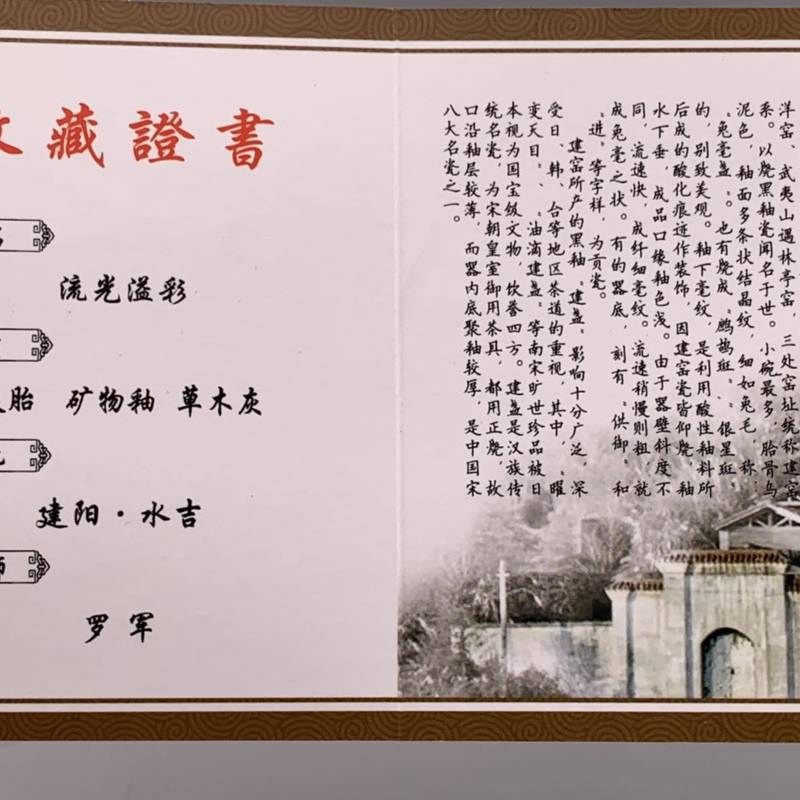 收藏證書
流光溢彩
胎 矿物釉 草木灰
建阳·水吉
师
罗军
洋窑、武夷山遇林亭窑，三处窑址统称建窑
系。以烧黑釉瓷闻名于世。小碗最多，胎骨乌
泥色，釉面多条状结晶纹，细如兔毛，称：
“兔毫盏”。也有烧成“鹧鸪斑”、“银星斑”
的，别致美观。釉下毫纹，是利用酸性釉料所
后成的酸化痕迹作装饰，因建窑瓷皆仰烧，釉
水下垂，成品口缘釉色浅。由于器壁斜度不
同，流速快，成纤细毫纹。流速稍慢则粗，就
成兔毫之状。有的器底，刻有“供御”和
“进”等字样，为贡瓷。
建窑所产的黑釉“建盏”影响十分广泛，深
受日、韩、台等地区茶道的重视，其中，“曜
变天目”、“油滴建盏”等南宋旷世珍品被日
本视为国宝级文物，饮誉四方。建盏是汉族传
统名瓷，为宋朝皇室御用茶具，都用正烧，故
口沿釉层较薄，而器内底聚釉较厚，是中国宋
八大名瓷之一。